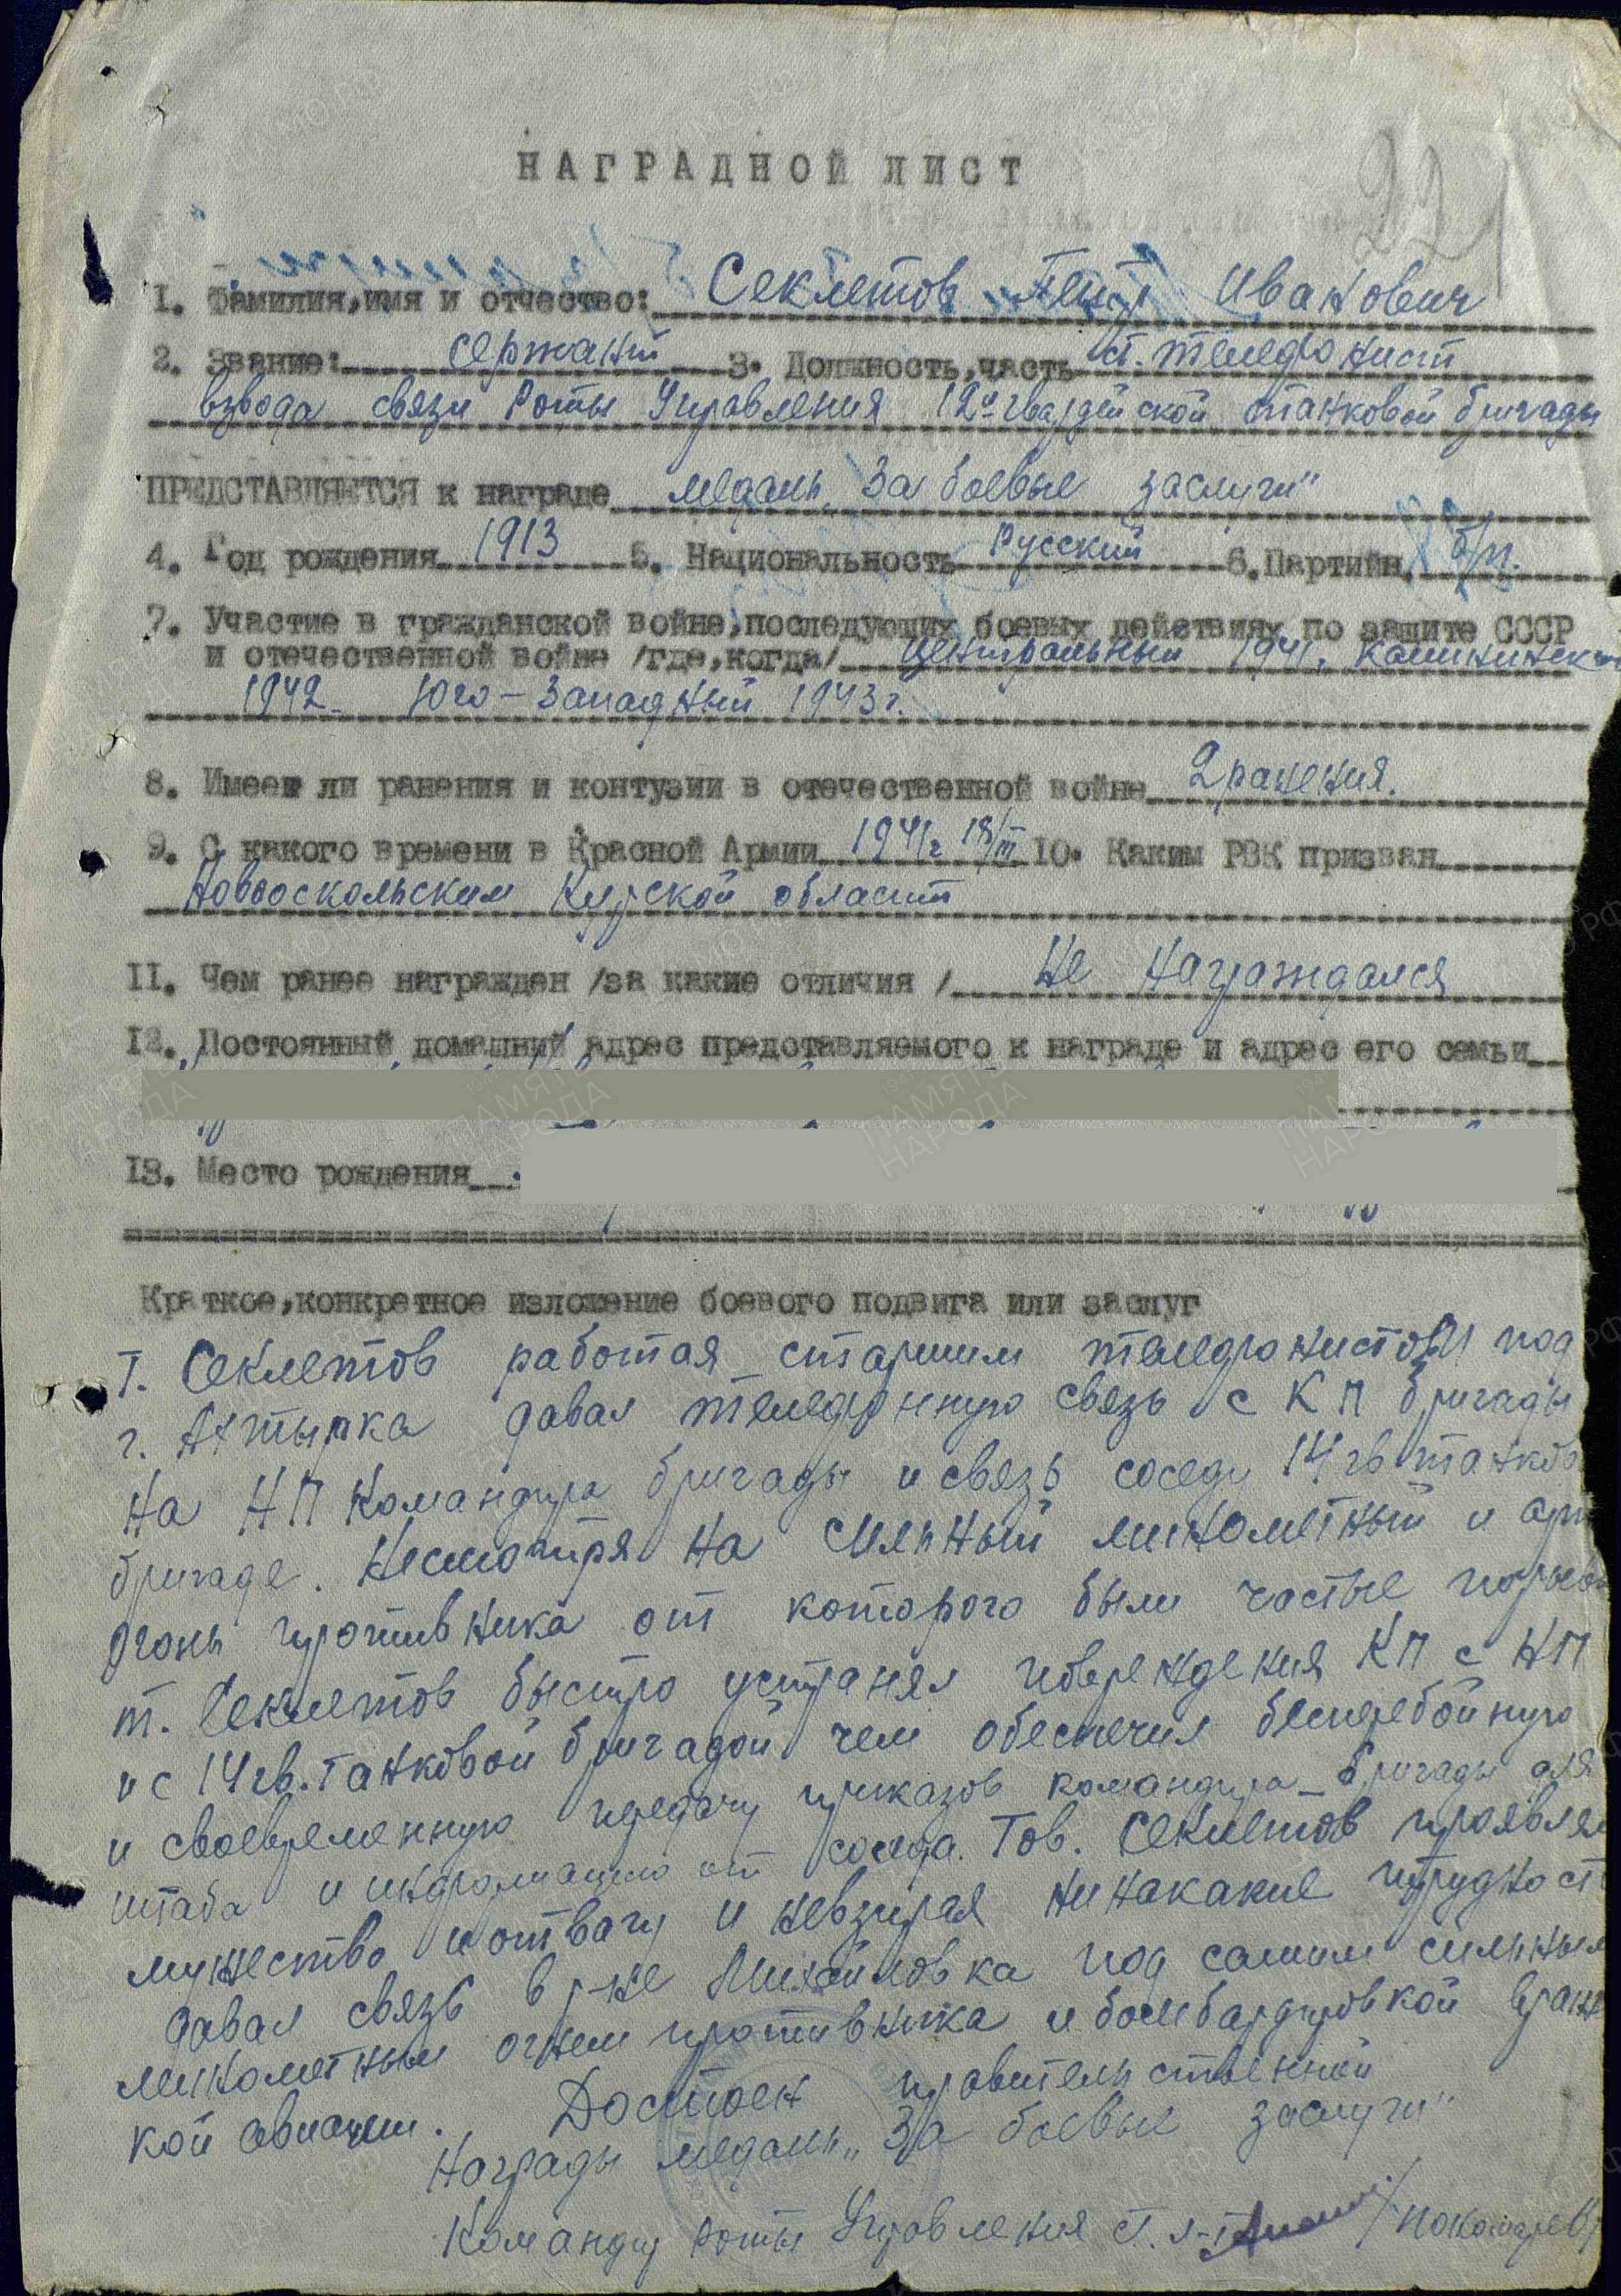 22
НАГРАДНОЙ ЛИСТ
1. Фамилия, имя и отчество: Секлетов Петр Иванович
2. Звание: сержант 3. Должность, часть ст. телефонист
взвода связи Роты Управления 12й гвардейской танковой бригады
ПРЕДСТАВЛЯЕТСЯ к награде медаль „За боевые заслуги"
4. Год рождения 1913 5. Национальность Русский 6. Партийн. б/п.
7. Участие в гражданской войне, последующих боевых действиях по защите СССР
и отечественной войне /где, когда/ Центральный 1941, Калининск
1942 - Юго-Западный 1943 г.
8. Имеет ли ранения и контузии в отечественной войне 2 ранения.
9. С какого времени в Красной Армии 1941 г 18/III 10. Каким РВК призван
Новооскольским Курской област
11. Чем ранее награжден /за какие отличия / Не награждался
12. Постоянный домашний адрес представляемого к награде и адрес его семьи
13. Место рождения
Краткое, конкретное изложение боевого подвига или заслуг
Т. Секлетов работая старшим телефонистом под
г. Ахтырка давал телефонную связь с КП бригады
на НП Командира бригады и связь соседу 14 гв танков
бригаде. Несмотря на сильный минометный и арт
огонь противника от которого были частые порыв
т. Секлетов быстро устранял повреждения КП с НП
и с 14 гв. танковой бригадой чем обеспечил бесперебойную
и своевременную передачу приказов командира бригады для
штаба и информацию от соседа. Тов. Секлетов проявля
мужество и отвагу и невзирая нинакакие трудност
давал связь в р-не Михайловка под самым сильным
минометным огнем противника и бомбардировкой вражес
кой авиации. Достоен правительственной
награды медаль „За боевые заслуги"
Командир роты Управления Ст. л-т /Пономарев/